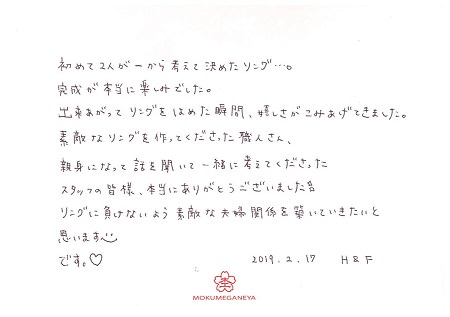 初めて2人が一から考えて決めたリング…。
完成が本当に楽しみでした。
出来あがってリングをはめた瞬間、嬉しさがこみあげてきました。
素敵なリングを作ってくださった職人さん、
親身になって話を聞いて一緒に考えてくださった
スタッフの皆様、本当にありがとうございました
リングに負けないよう素敵な夫婦関係を築いていきたいと
思います
です。♡
2019.2.17 H&F
MOKUMEGANEYA